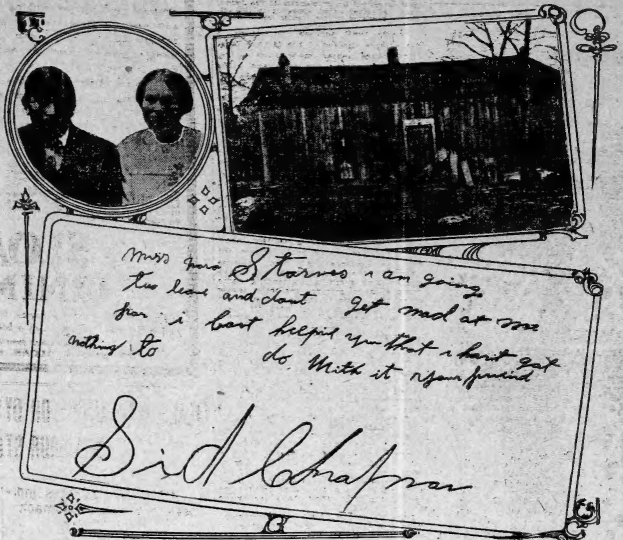 Miss nora Starnes i am going
too leave and dont get mad at me
for i cant helpid you that i hant got
nothing to do. With it your friend
Sid Chapman